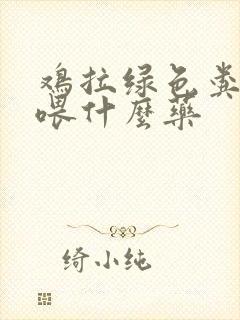 鸡拉绿色粪
喂什麼药
绮小纯